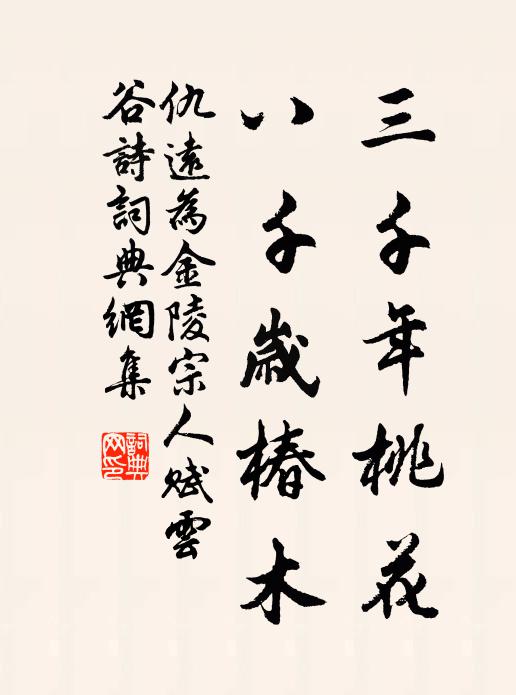 三千年桃花
八千歲椿木
仇遠為金陵宗人賦雲
谷詩詞典網集
詞典網印